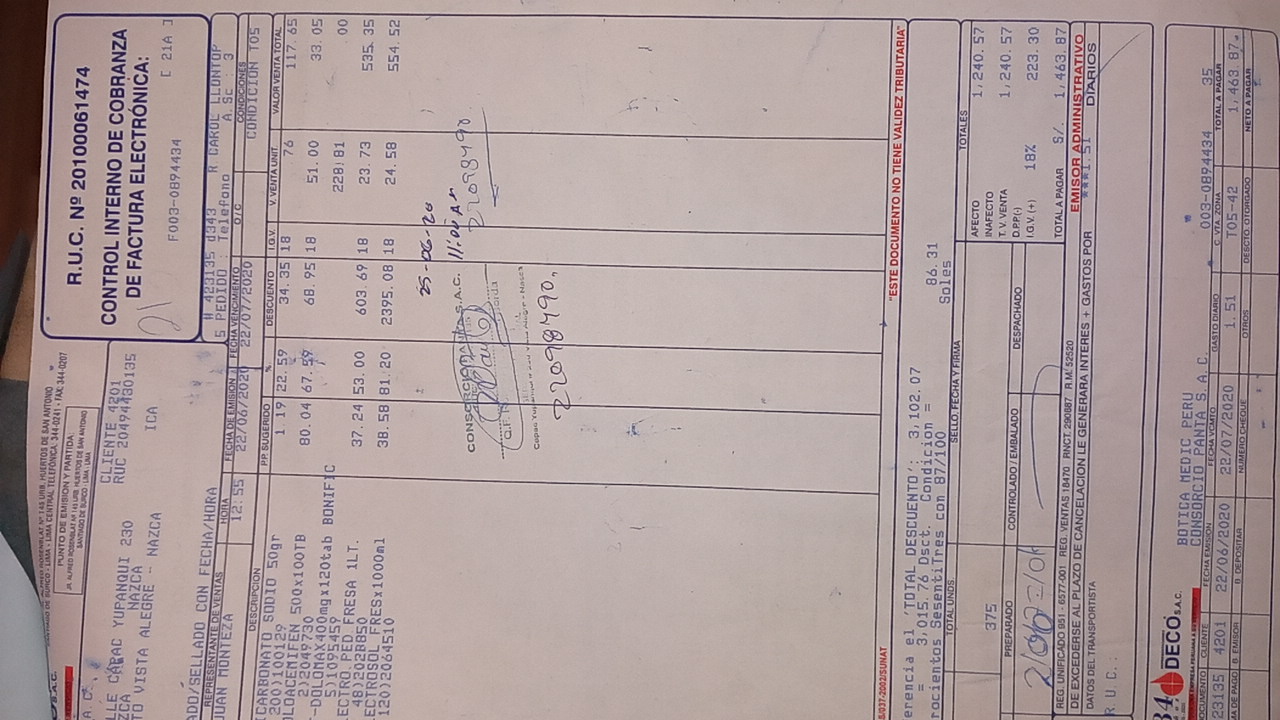 R.U.C. Nº 20100061474
CONTROL INTERNO DE COBRANZA
DE FACTURA ELECTRÓNICA:
F003-0894434 [ 21A ]
SANTIAGO DE SURCO - LIMA - LIMA CENTRAL TELEFÓNICA: 344-0241 - FAX: 344-0207
PUNTO DE EMISIÓN Y PARTIDA:
SANTIAGO DE SURCO - LIMA - LIMA
CLIENTE 4201
RUC 20494430135
YUPANQUI 230
NAZCA
TO VISTA ALEGRE - NAZCA ICA
# 423135 d343 R CAROL LLONTOP
S PEDIDO : Telefono A.Sc : 3
ADO/SELLADO CON FECHA/HORA
REPRESENTANTE DE VENTAS HORA FECHA DE EMISIÓN FECHA VENCIMIENTO O/C CONDICIONES
JUAN MONTEZA 12:55 22/06/2020 22/07/2020 CONDICION T05
DESCRIPCION P.P. SUGERIDO % DESCUENTO I.G.V. V. VENTA UNIT. VALOR VENTA TOTAL
CARBONATO SODIO 50gr 1 19 22 59 34 35 18 76 117 65
200)100129
OLDACEMIFEN 500x100TB 80.04 67.59 68.95 18 51.00 33.05
2)2049730
-DOLOMAX400mgx120tab BONIFIC 228)81 00
5)1095459
ECTRO PED FRESA 1LT. 37.24 53.00 603.69 18 23.73 535.35
48)2028850
ECTROSOL FRESx1000ml 38.58 81.20 2395.08 18 24.58 554.52
120)2064510
25-06-20
11:00 AM
22098490
22098490,
"ESTE DOCUMENTO NO TIENE VALIDEZ TRIBUTARIA"
037-2002/SUNAT
erencia el 'TOTAL DESCUENTO': 3,102.07
= 3,015.76 Dsct. Condicion = 86.31
rocientos SesentiTres con 87/100 Soles
TOTAL UNDS. SELLO, FECHA Y FIRMA TOTALES
375
AFECTO 1,240.57
INAFECTO
T.V. VENTA 1,240.57
D.P.P.(-)
I.G.V. (+) 18% 223.30
TOTAL A PAGAR S/. 1,463.87
PREPARADO CONTROLADO / EMBALADO DESPACHADO
REG. UNIFICADO 951 - 6577-001 REG. VENTAS 18470 RNCT. 290887 R.M. 52520 EMISOR ADMINISTRATIVO
DE EXCEDERSE AL PLAZO DE CANCELACION LE GENERARA INTERES + GASTOS POR ***1.51 DIARIOS
DATOS DEL TRANSPORTISTA
R.U.C.:
DECO S.A.C.
BOTICA MEDIC PERU
CONSORCIO PANTA S.A.C.
003-0894434 35
CLIENTE FECHA EMISIÓN FECHA VCMTO GASTO DIARIO C. VTA. ZONA TOTAL A PAGAR
23135 4201 22/06/2020 22/07/2020 1.51 T05-42 1,463.87
B. EMISOR B. DEPOSITAR NUMERO CHEQUE OTROS DESCTO. OTORGADO NETO A PAGAR